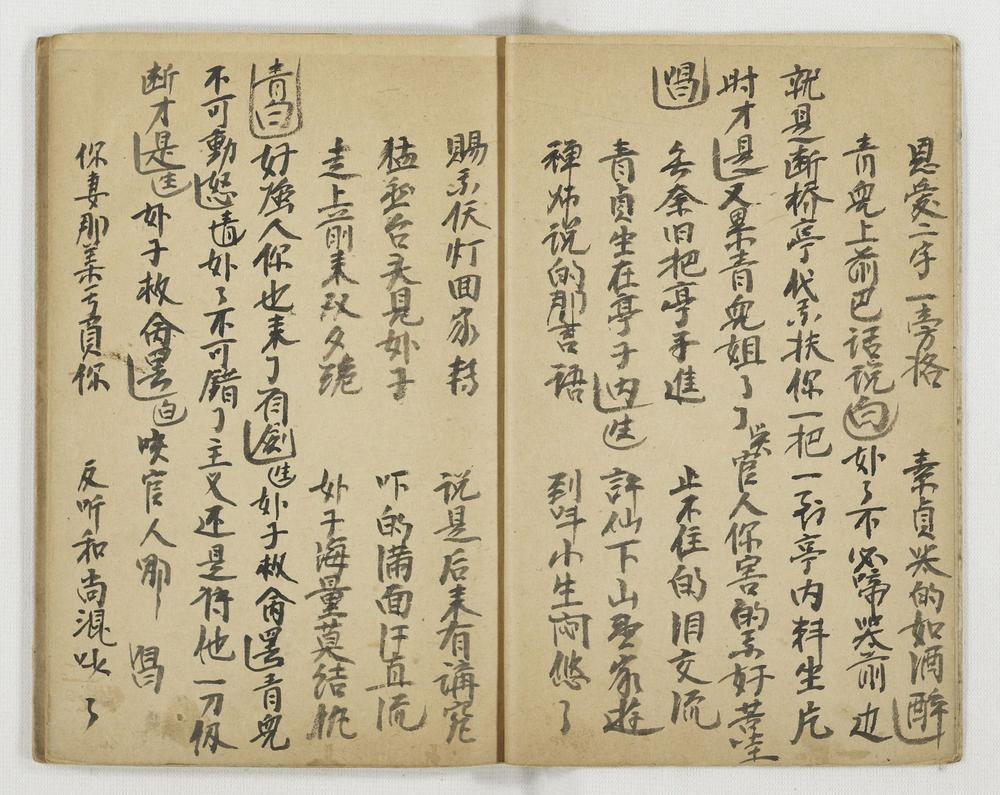 恩愛二字一旁格 素貞哭的如酒醉
青兒上前巴话说 白 奵了不必啼哭前边
就是断桥亭代奈扶你一把一到亭内料生片
时才是 又累青兒姐了了哭官人你害的奈好苦
唱 奈旧把亭子進 止不住的泪交流
青貞生在亭子内 生 許仙下山 家遊
禅师说的那言语 到叫小生闷悠了
賜奈伏灯回家轉 说是后来有講究
猛 台头見奵子 吓的满面汗直流
走上前来双夕跪 奵子海量莫结仇
青白 好强人你也来了有劍 生 奵子救命罢 青兒
不可動怒 青 奵了不可錯了主义还是将他一刀
断才是 生 奵子救命罢 白 唉官人那 唱
你妻那美亏負你 反听和尚混 了